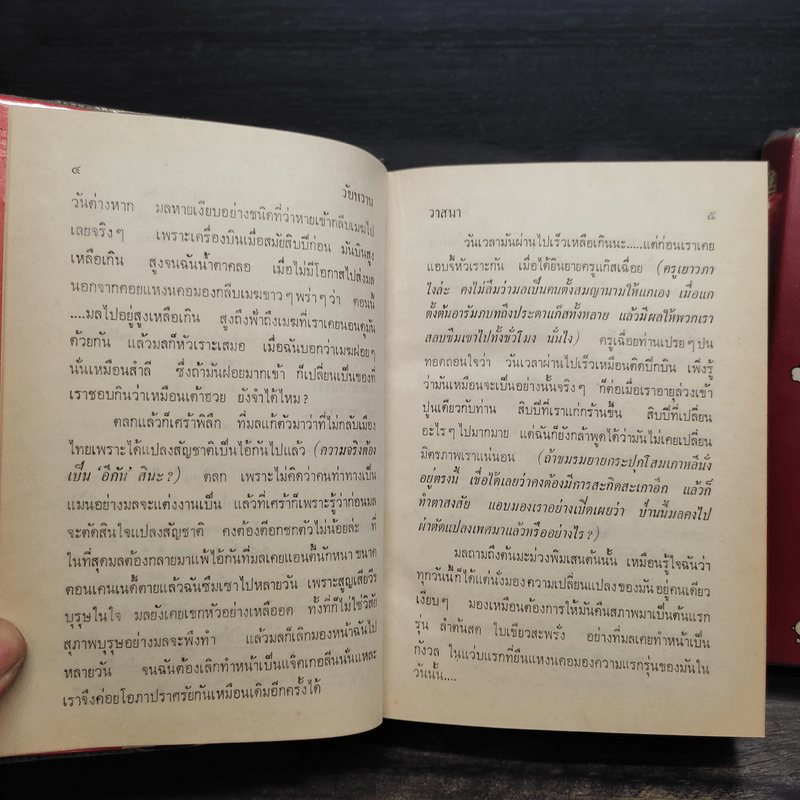 ๔
วัยหวาน
วันต่างหาก มลหายเงียบอย่างชนิดที่ว่าหายเข้ากลีบเมฆไป
เลยจริงๆ เพราะเครื่องบินเมื่อสมัยสิบปีก่อน มันบินสูง
เหลือเกิน สูงจนฉันน้ำตาคลอ เมื่อไม่มีโอกาสไปส่งมล
นอกจากคอยแหงนคอมองกลีบเมฆขาวๆพร่าๆว่า ตอนนี้
....มลไปอยู่สูงเหลือเกิน สูงถึงฟ้าถึงเมฆที่เราเคยนอนดูมัน
ด้วยกัน แล้วมลก็หัวเราะเสมอ เมื่อฉันบอกว่าเมฆฝอยๆ
นั่นเหมือนสำลี ซึ่งถ้ามันฝอยมากเข้า ก็เปลี่ยนเป็นของที่
เราชอบกินว่าเหมือนเต้าฮวย ยังจำได้ไหม?
ตลกแล้วก็เศร้าพิลึก ที่มลแก้ตัวมาว่าที่ไม่กลับเมือง
ไทยเพราะได้แปลงสัญชาติเป็นไอ้กันไปแล้ว (ความจริงต้อง
เป็น ‘อีกัน’ สินะ?) ตลก เพราะไม่คิดว่าคนท่าทางเป็น
แมนอย่างมลจะแต่งงานเป็น แล้วที่เศร้าก็เพราะรู้ว่าก่อนมล
จะตัดสินใจแปลงสัญชาติ คงต้องตีอกชกตัวไม่น้อยล่ะ ที่
ในที่สุดมลต้องกลายมาแพ้ไอ้กันที่มลเคยแอนตี้นักหนา ขนาด
ตอนเคนเนดี้ตายแล้วฉันซึมเซาไปหลายวัน เพราะสูญเสียวีร
บุรุษในใจ มลยังเคยเขกหัวอย่างเหลืออด ทั้งที่ก็ไม่ใช่วิสัย
สุภาพบุรุษอย่างมลจะพึงทำ แล้วมลก็เลิกมองหน้าฉันไป
หลายวัน จนฉันต้องเลิกทำหน้าเป็นแจ๊คเกอลีนนั่นแหละ
เราจึงค่อยโอภาปราศรัยกันเหมือนเดิมอีกครั้งได้
วาสนา
๕
วันเวลามันผ่านไปเร็วเหลือเกินนะ.....แต่ก่อนเราเคย
แอบขี้หัวเราะกัน เมื่อได้ยินยายครูแก๊สเฉื่อย (ครูเยาวภา
ไงล่ะ คงไม่ลืมว่ามลเป็นคนตั้งสมญานามให้แกเอง เมื่อแก
ตั้งต้นอารัมภบทถึงประดาแก๊สทั้งหลาย แล้วมีผลให้พวกเรา
สลบซึมเซาไปทั้งชั่วโมง นั่นไง) ครูเฉื่อยท่านเปรยๆปน
ทอดถอนใจว่า วันเวลาผ่านไปเร็วเหมือนติดปีกบิน เพิ่งรู้
ว่ามันเหมือนจะเป็นอย่างนั้นจริงๆ ก็ต่อเมื่อเราอายุล่วงเข้า
ปูนเดียวกับท่าน สิบปีที่เราแก่กร้านขึ้น สิบปีที่เปลี่ยน
อะไรๆไปมากมาย แต่ฉันก็ยังกล้าพูดได้ว่ามันไม่เคยเปลี่ยน
มิตรภาพเราแน่นอน (ถ้าชมรมยายกระปุกโสมเกาหลีนั่ง
อยู่ตรงนี้ เชื่อได้เลยว่าคงต้องมีการสะกิดสะเกาอีก แล้วก็
ทำตาสงสัย แอบมองเราอย่างเปิดเผยว่า ป่านนี้มลคงไป
ผ่าตัดแปลงเพศมาแล้วหรืออย่างไร?)
มลถามถึงต้นมะม่วงพิมเสนต้นนั้น เหมือนรู้ใจฉันว่า
ทุกวันนี้ก็ได้แต่นั่งมองความเปลี่ยนแปลงของมันอยู่คนเดียว
เงียบๆ มองเหมือนต้องการให้มันคืนสภาพมาเป็นต้นแรก
รุ่น ลำต้นสด ใบเขียวสะพรั่ง อย่างที่มลเคยทำหน้าเป็น
กังวล ในแว่บแรกที่ยืนแหงนคอมองความแรกรุ่นของมันใน
วันนั้น....